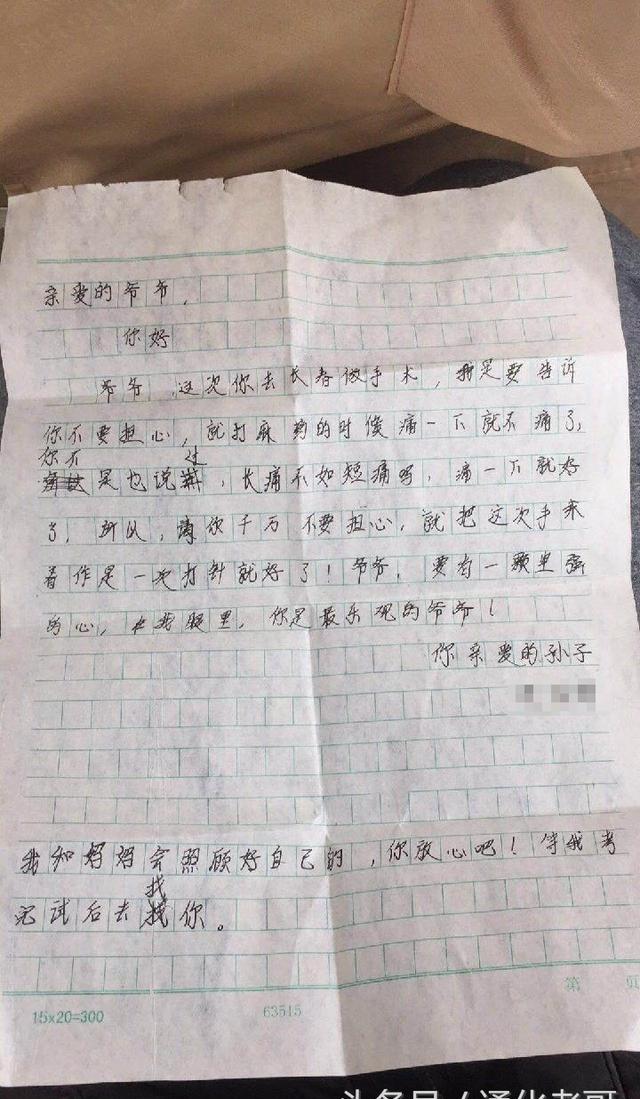 亲爱的爷爷,
你好
爷爷,这次你去长春做手术,我是要告诉
你不要担心,就打麻药的时候痛一下就不痛了,
你不是也说过,长痛不如短痛吗,痛一下就好
了,所以,请你千万不要担心,就把这次手术
看作是一次打针就好了!爷爷,要有一颗坚强
的心,在我眼里,你是最乐观的爷爷!
你亲爱的孙子
我和妈妈会照顾好自己的,你放心吧!等我考
完试后去找你。
第 页
15x20=300
63515
头条号/通化老哥